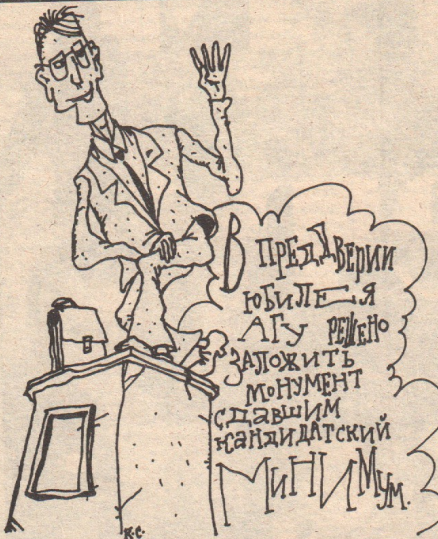 В ПРЕДДВЕРИИ
ЮБИЛЕЯ
АГУ РЕШЕНО
ЗАЛОЖИТЬ
МОНУМЕНТ
СДАВШИМ
КАНДИДАТСКИЙ
МИНИМУМ.
К.С.